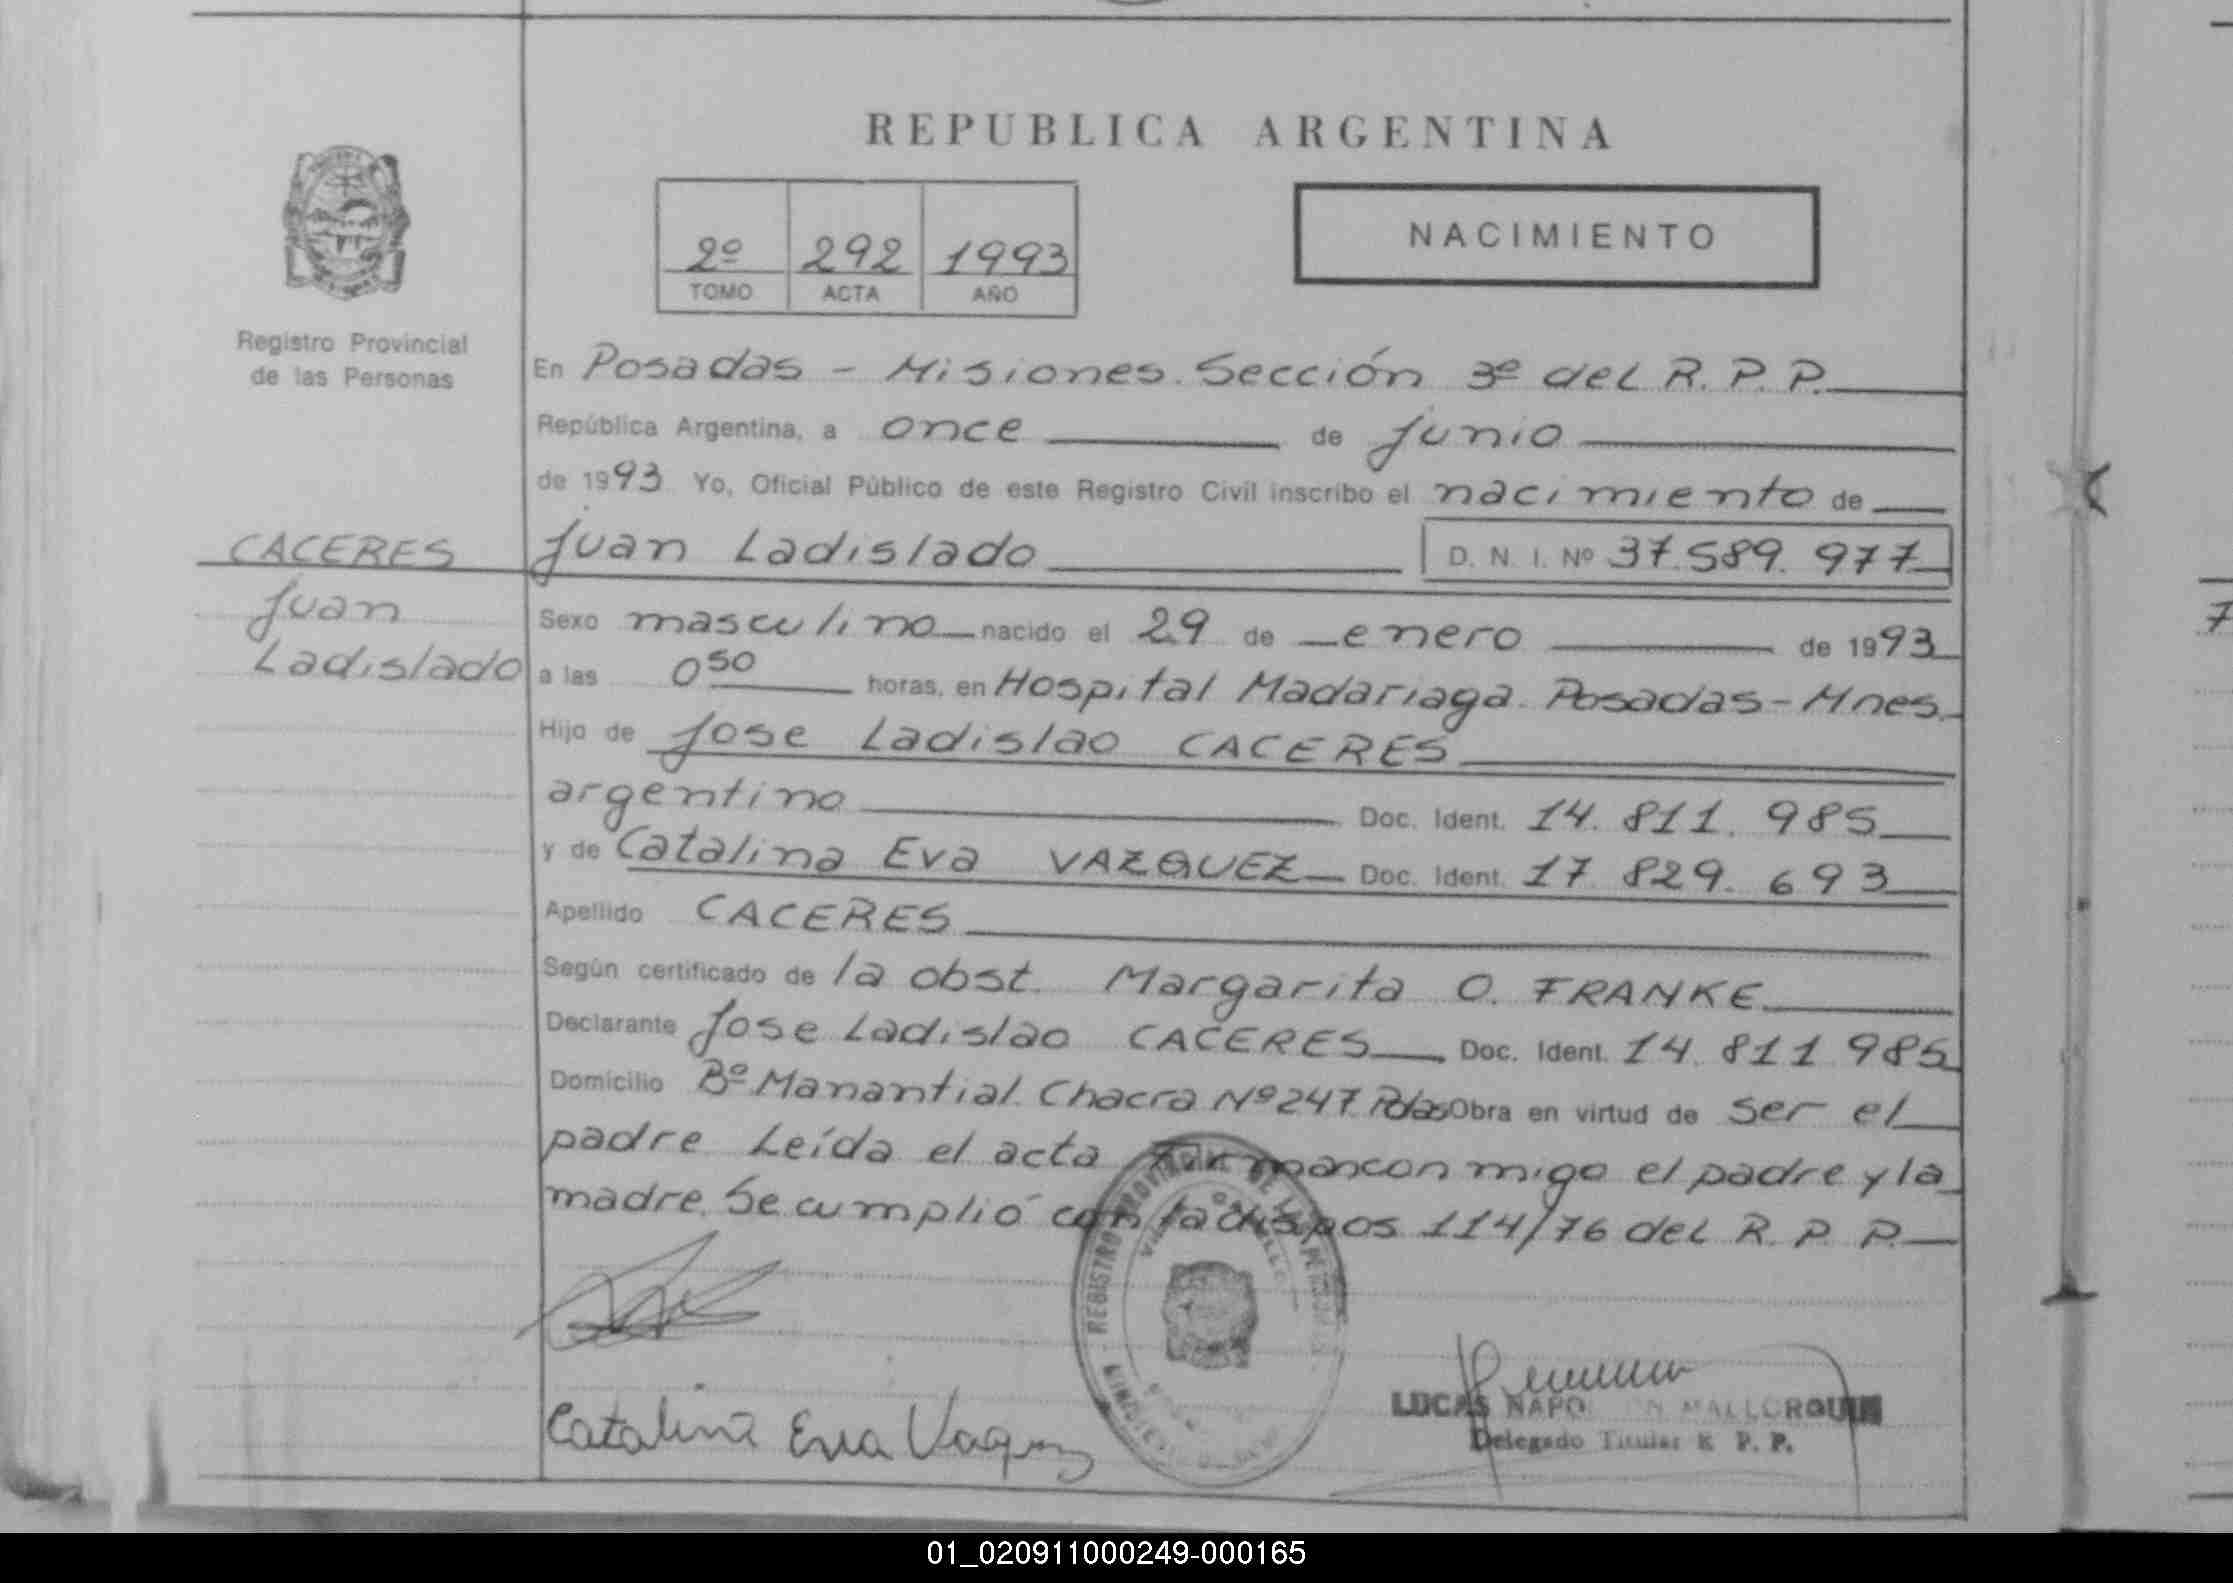 REPUBLICA ARGENTINA
2º 292 1993
TOMO ACTA AÑO
NACIMIENTO
Registro Provincial
de las Personas
En Posadas - Misiones. Sección 3º del R. P. P.
República Argentina, a once de Junio
de 1993 Yo, Oficial Público de este Registro Civil inscribo el nacimiento de
CACERES
Juan
Ladislado
Juan Ladislado D. N. I. Nº 37.589.977
Sexo masculino nacido el 29 de enero de 1993
a las 0 50 horas, en Hospital Madariaga. Posadas - Mnes.
Hijo de Jose Ladislao CACERES
argentino Doc. Ident. 14.811.985
y de Catalina Eva VAZQUEZ Doc. Ident. 17 829.693
Apellido CACERES
Según certificado de la obst. Margarita O. FRANKE
Declarante Jose Ladislao CACERES Doc. Ident. 14.811 985
Domicilio Bº Manantial. Chacra Nº 247 Pdas Obra en virtud de ser el
padre Leída el acta firman conmigo el padre y la
madre. Se cumplió con la dispos 114/76 del R. P. P.
REGISTRO PROVINCIAL DE LAS PERSONAS
Catalina Eva Vazquez
LUCAS MALLORQUIN
Delegado Titular R. P. P.
01_020911000249-000165